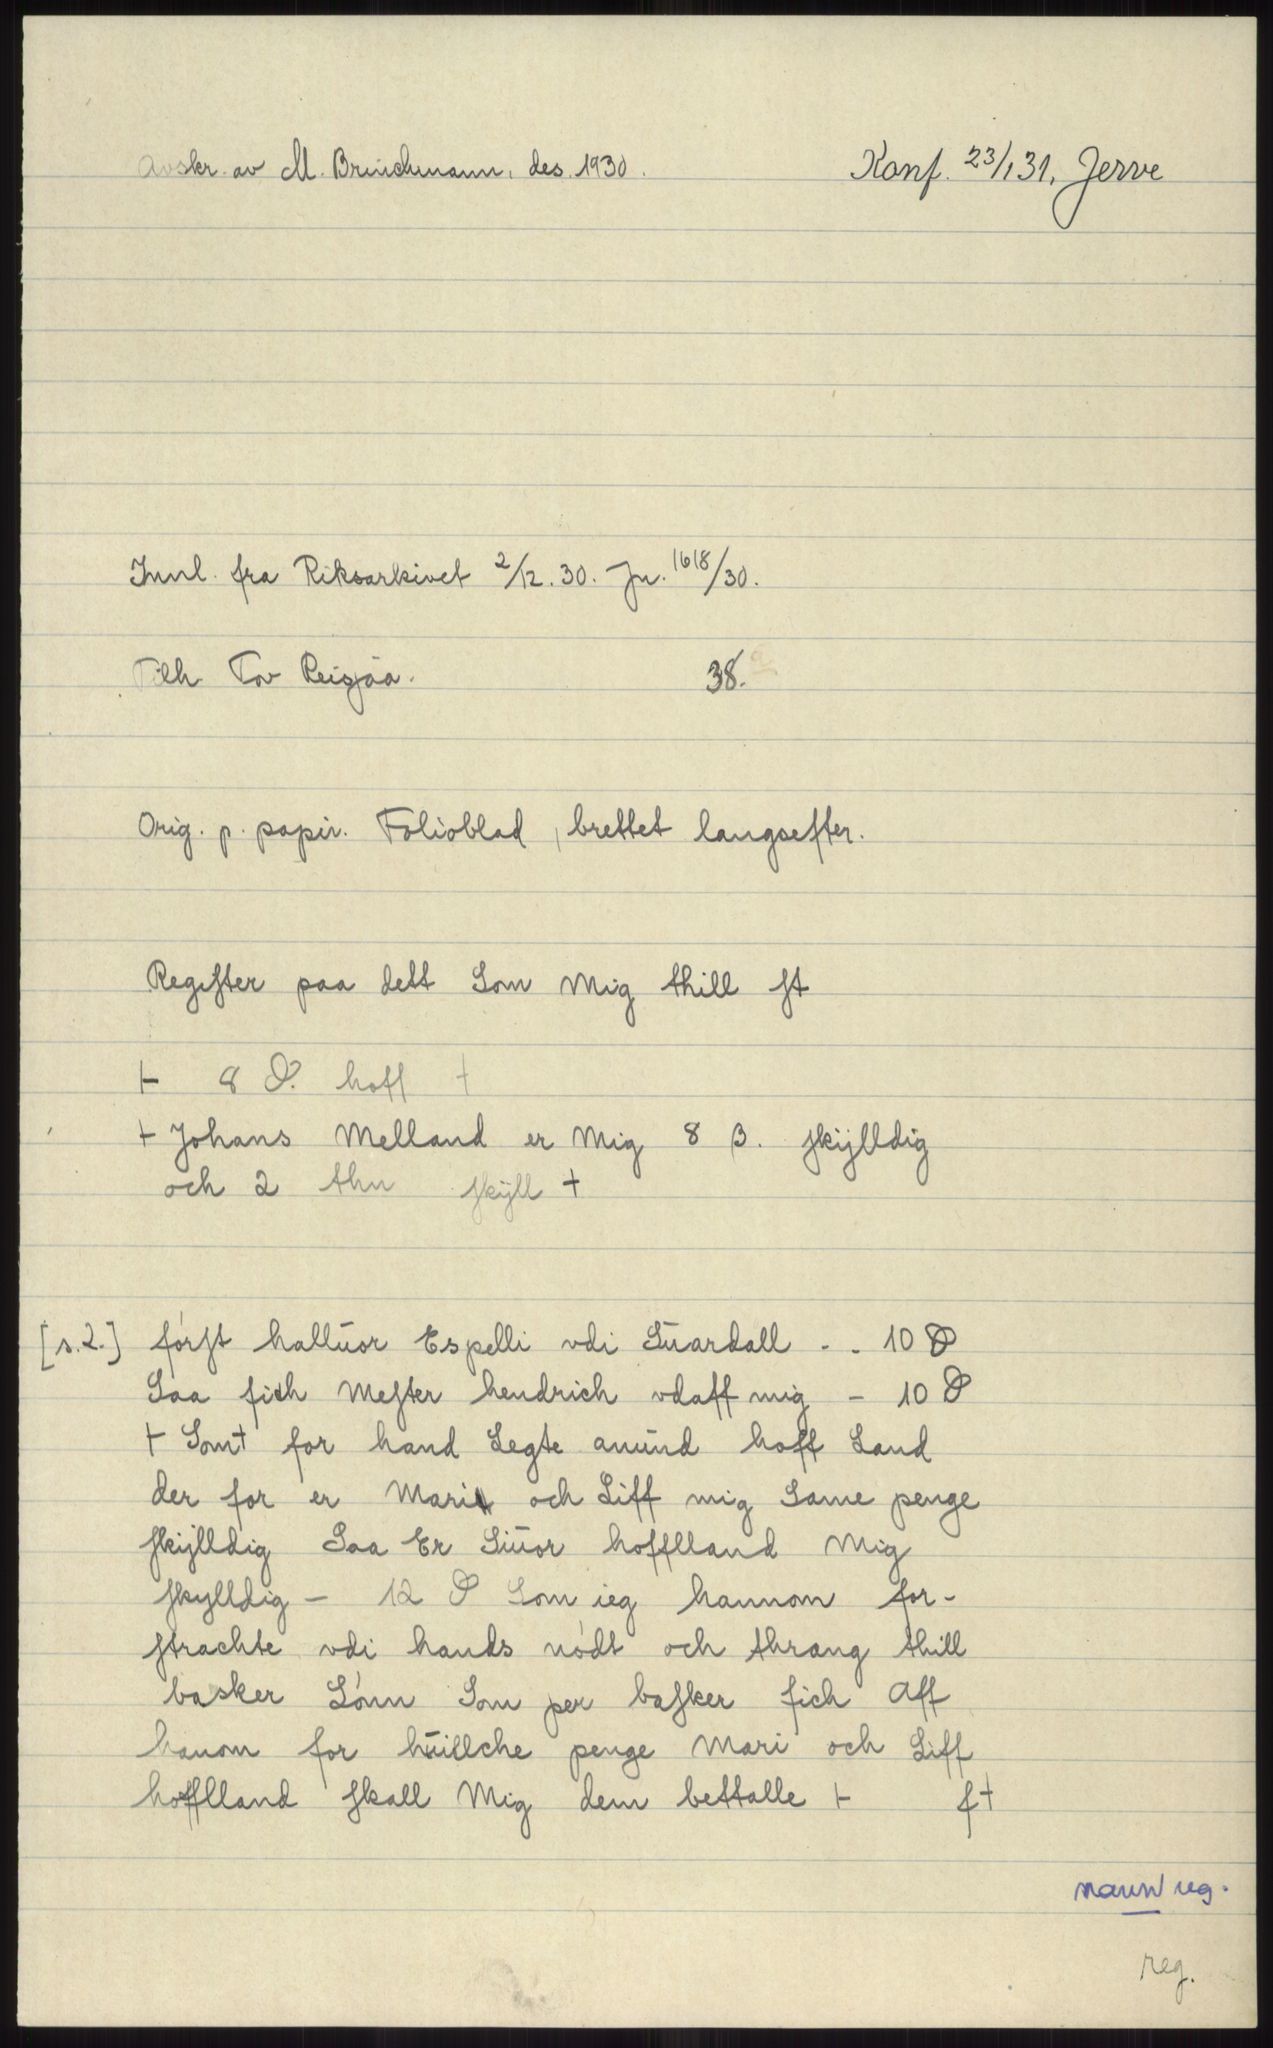 Avskr. av M. Brinchmann, des. 1930.
Konf. 23/1 31, Jerve
Innl. fra Riksarkivet 2/12. 30. Jn. 1618/30.
Tilh Tov Reisjåa. 38.
Orig. p. papir. Folioblad, brettet langsefter.
Regifter paa dett Som Mig thill ft
⊢ 8 ₰. hoff †
+ Johans Melland er Mig 8 β. fkÿlldig
och 2 thu fkÿll +
[s. 2.] fórft hallŭor Espelli vdi Sŭardall - - 10 ₰
Saa fich Mefter hendrich vdaff mig - 10 ₰
⊢ Som+ for hand Legte amŭnd hoff Land
der for er Mari och Liff mig Same penge
fkÿlldig Saa Er Siŭor hofflland Mig
fkylldig - 12 ₰ Som ieg hannom for-
ftrachte vdi hands nódt och thrang thill
basker Lónn Som per bafker fich Aff
hanom for hŭillche penge Mari och Liff
hofflland fkall Mig dem bettalle ⊢ f+
navn reg.
reg.